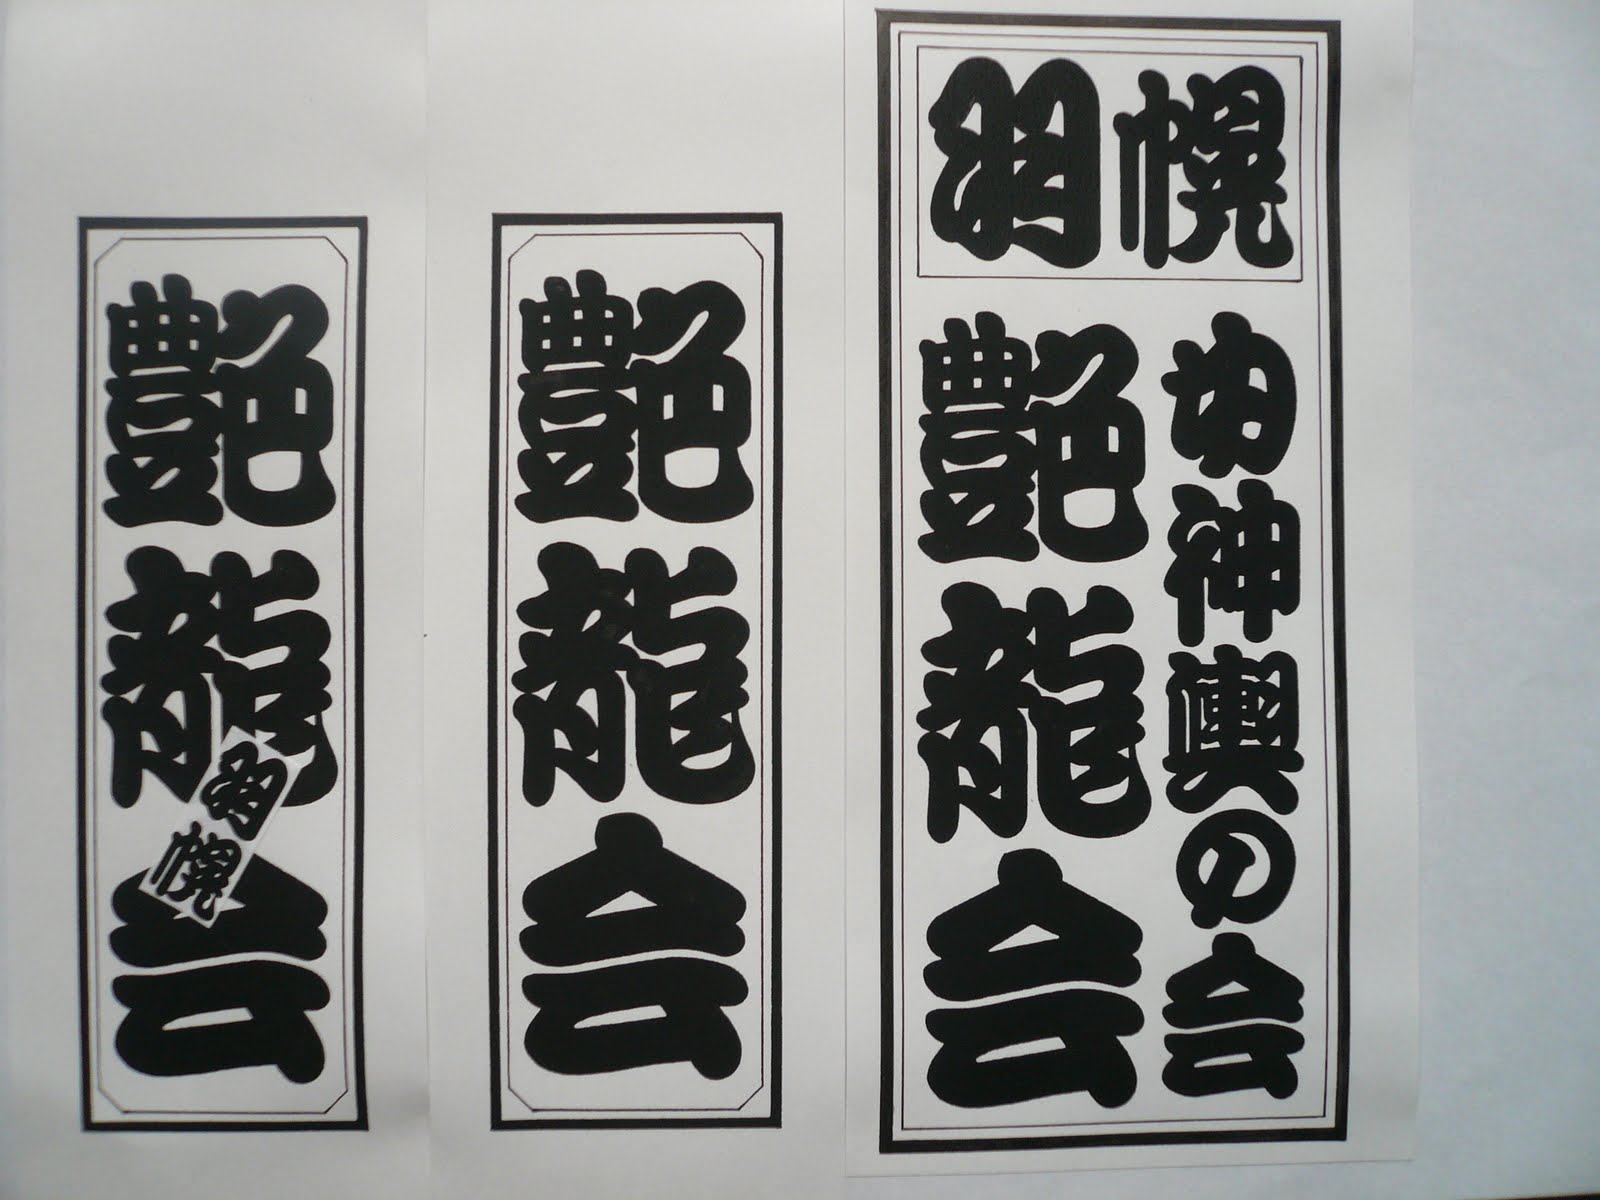 艶龍会
羽幌
艶龍会
羽幌
女神輿の会
艶龍会